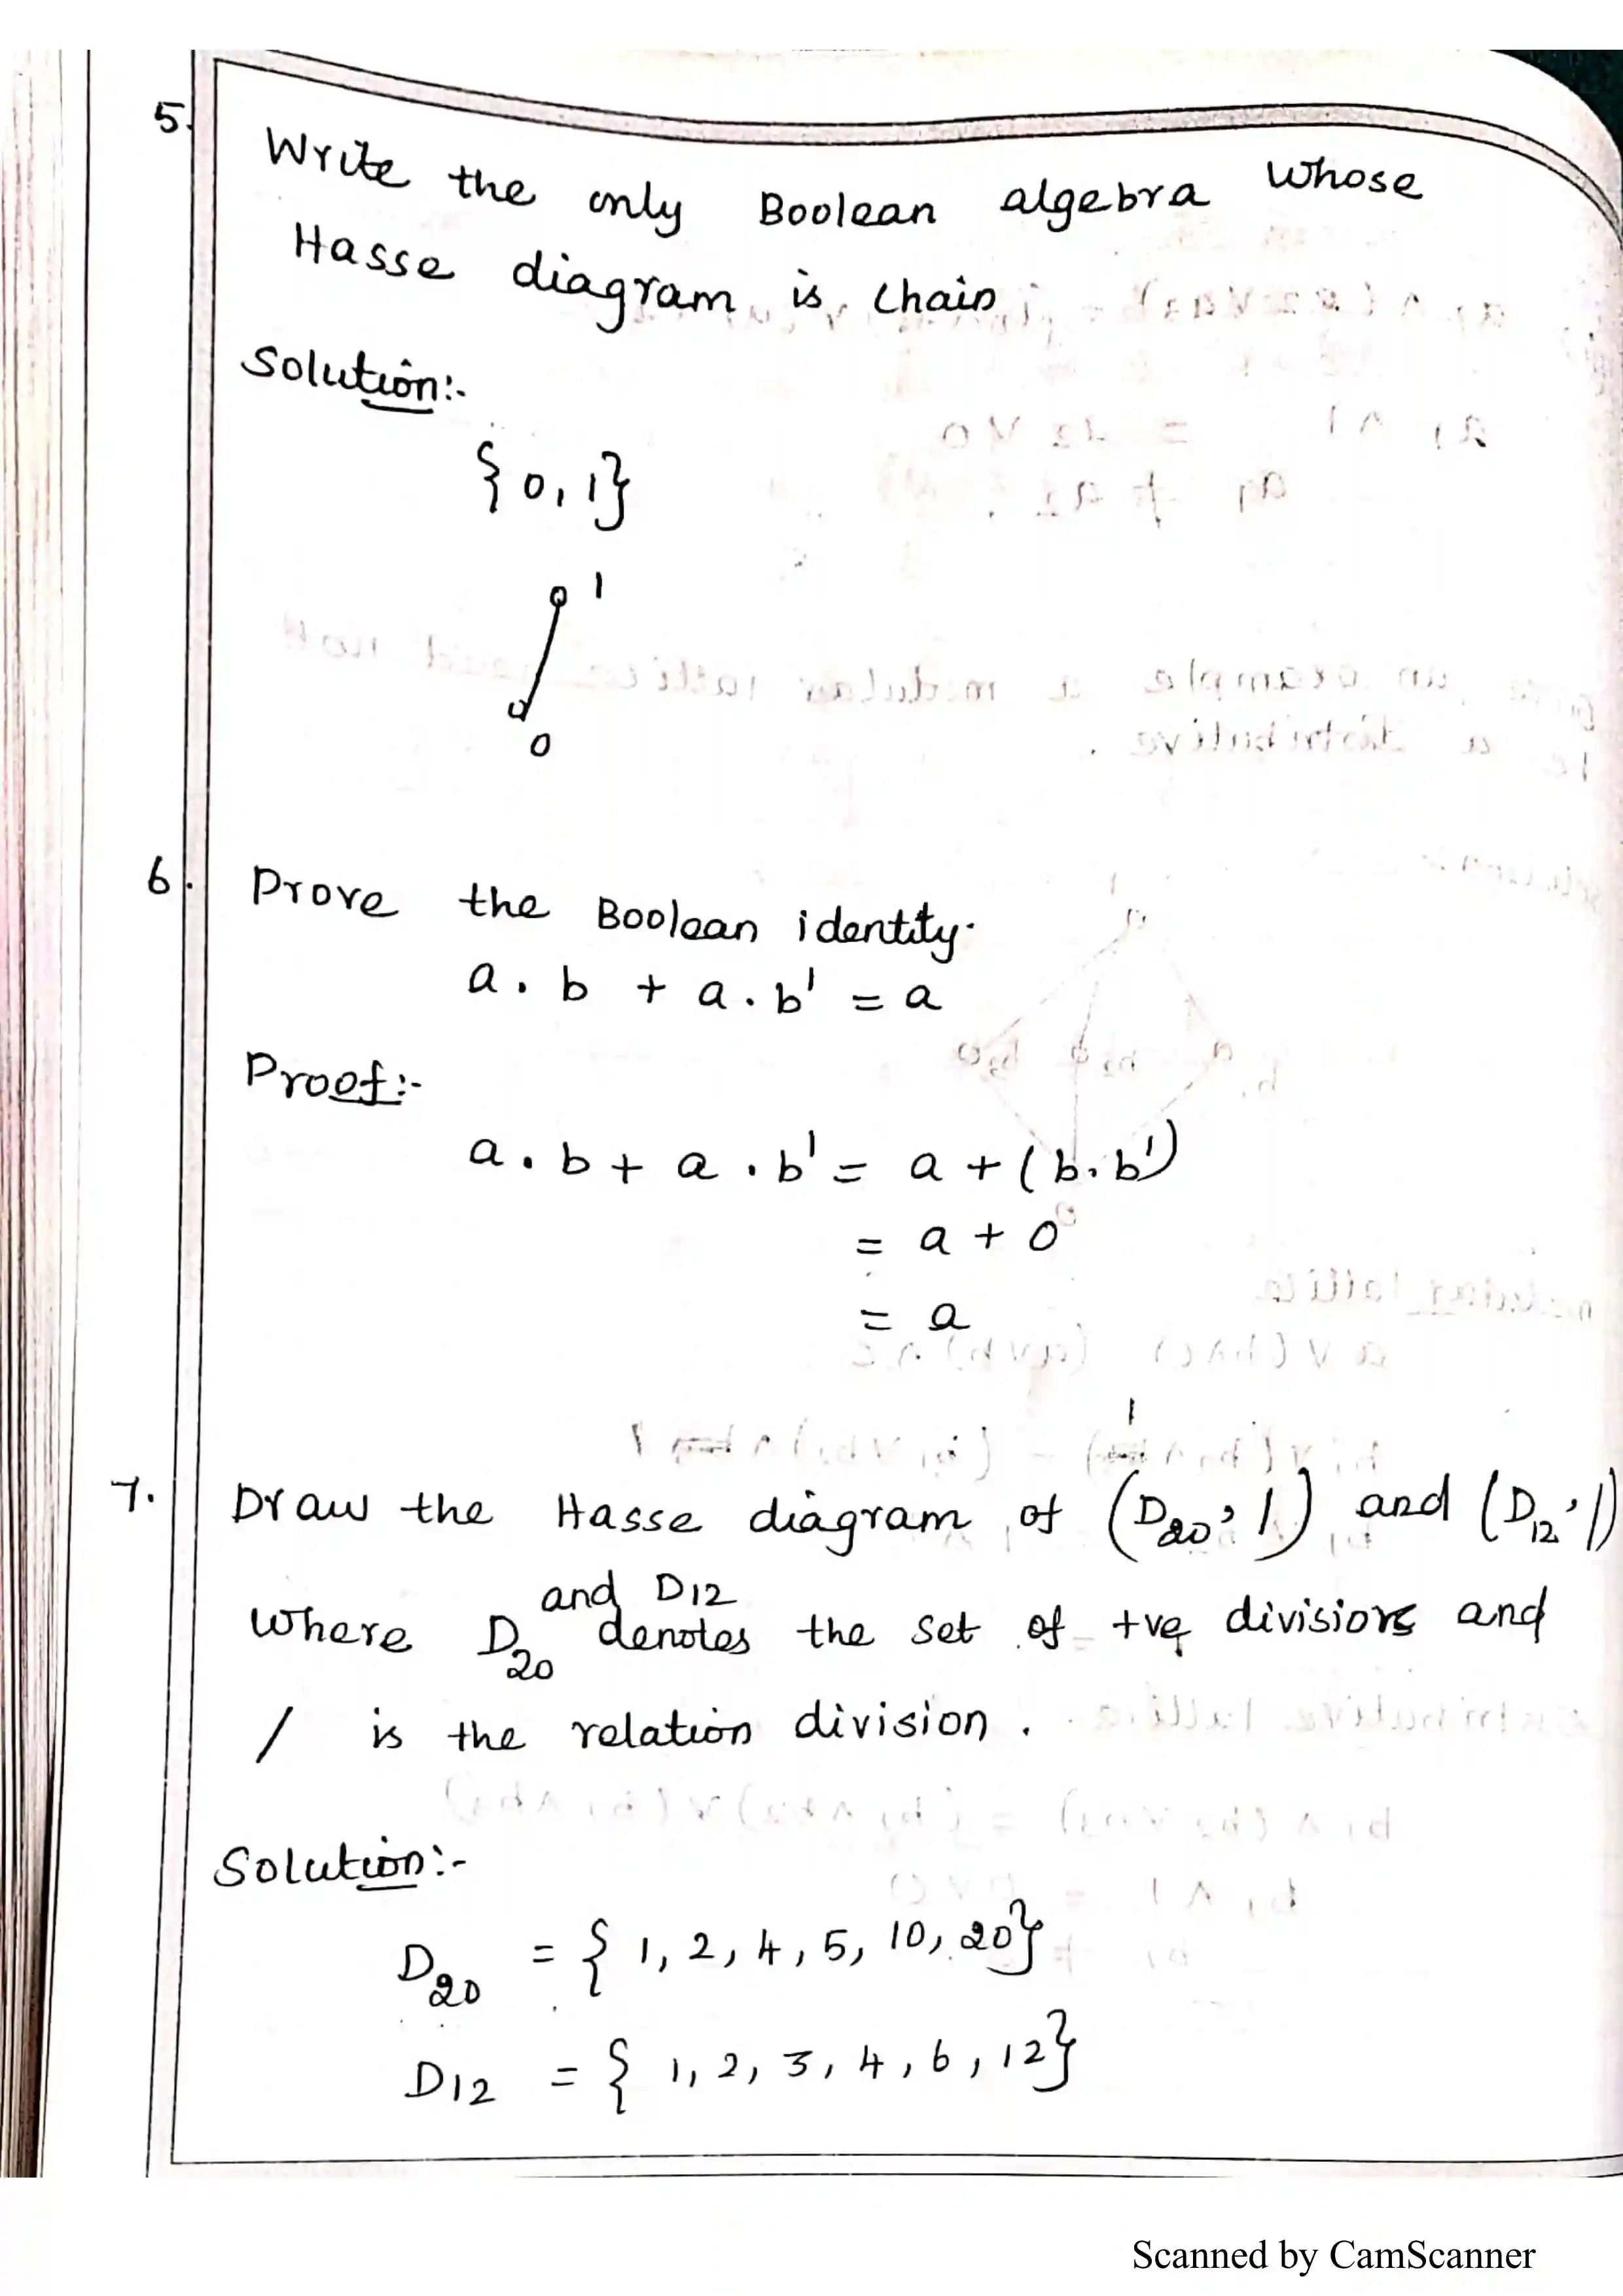 5.
Write the only Boolean algebra whose
Hasse diagram is chain
Solution:-
{0, 1}
1
0
6.
Prove the Boolean identity.
a . b + a . b' = a
Proof:-
a . b + a . b' = a + (b . b')
= a + 0
= a
7.
Draw the Hasse diagram of (D20, /) and (D12, /)
and D12
where D20 denotes the set of +ve divisiors and
/ is the relation division .
Solution:-
D20 = { 1, 2, 4, 5, 10, 20}
D12 = { 1, 2, 3, 4, 6, 12}
Scanned by CamScanner